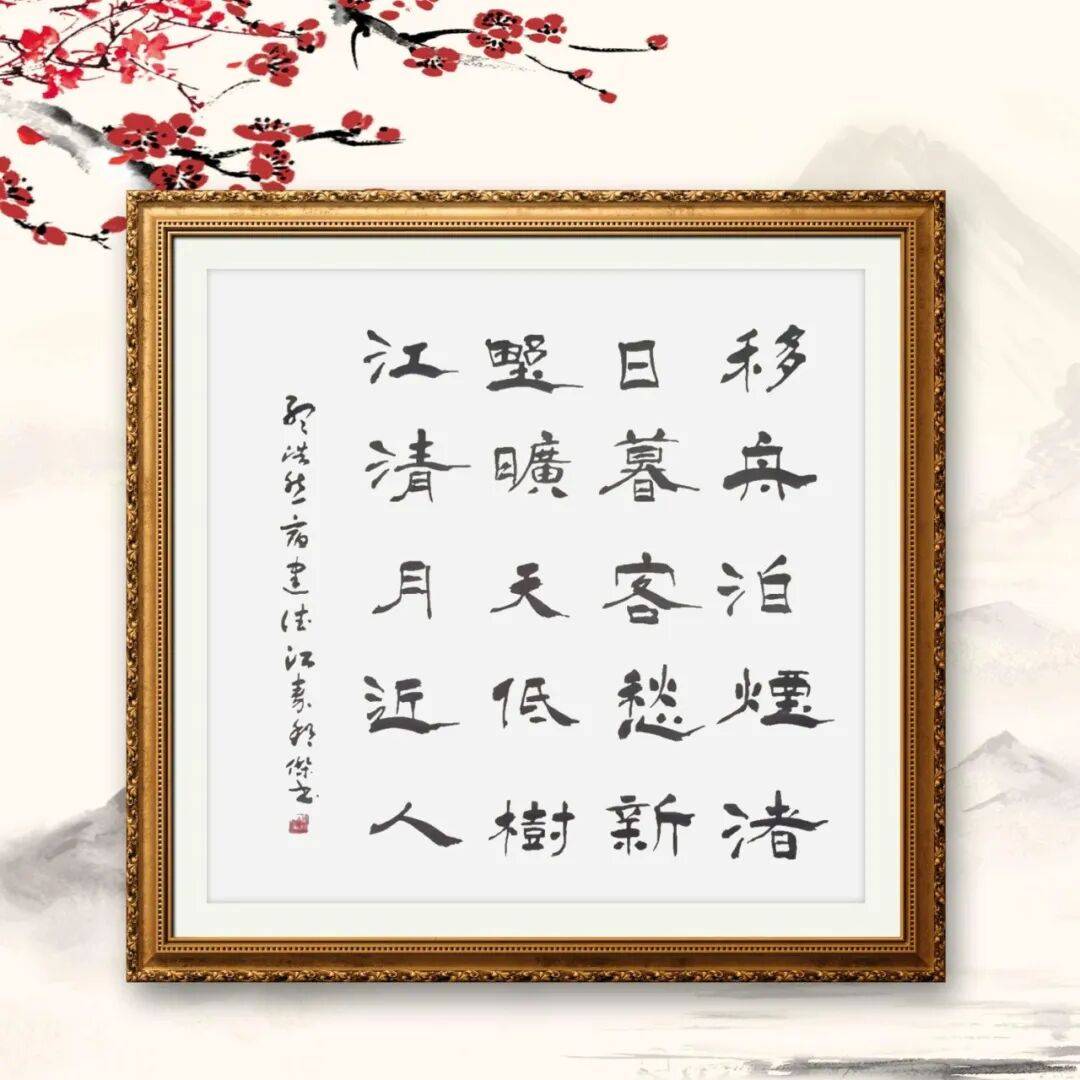 移舟泊煙渚
日暮客愁新
野曠天低樹
江清月近人
孟浩然宿建德江 傑書